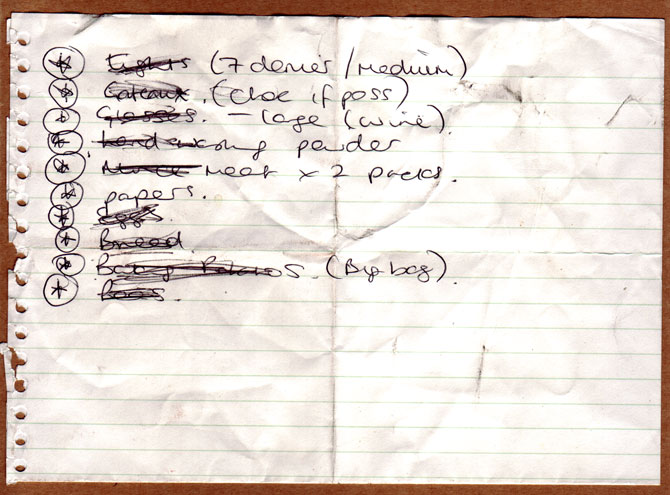 Tights (7 denier / medium)
Gateaux. (Choc if poss)
Glasses. - large (wine).
hand washing powder
Mince meat x 2 packs.
papers.
eggs.
Bread.
Baking Potatoes. (Big bag).